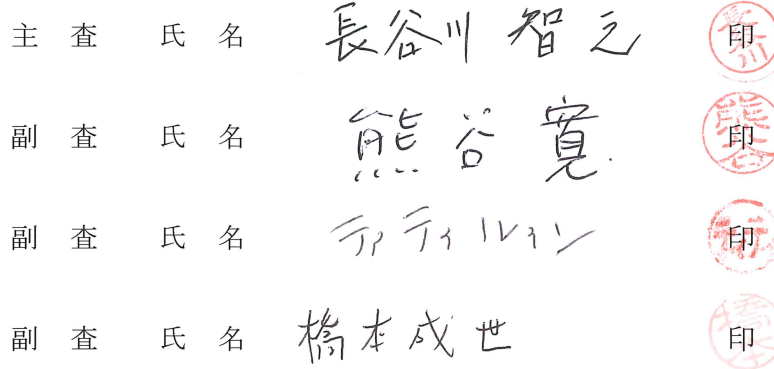 主 査 氏 名 長谷川 智之 印
副 査 氏 名 熊谷 寛 印
副 査 氏 名 印
副 査 氏 名 橋本成世 印